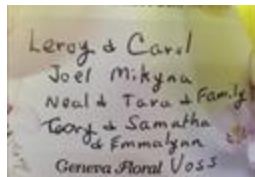 Leroy & Carol
Joel Mikyna
Neal & Tara & Family
& Samatha
& Emmalynn
Geneva Floral Voss